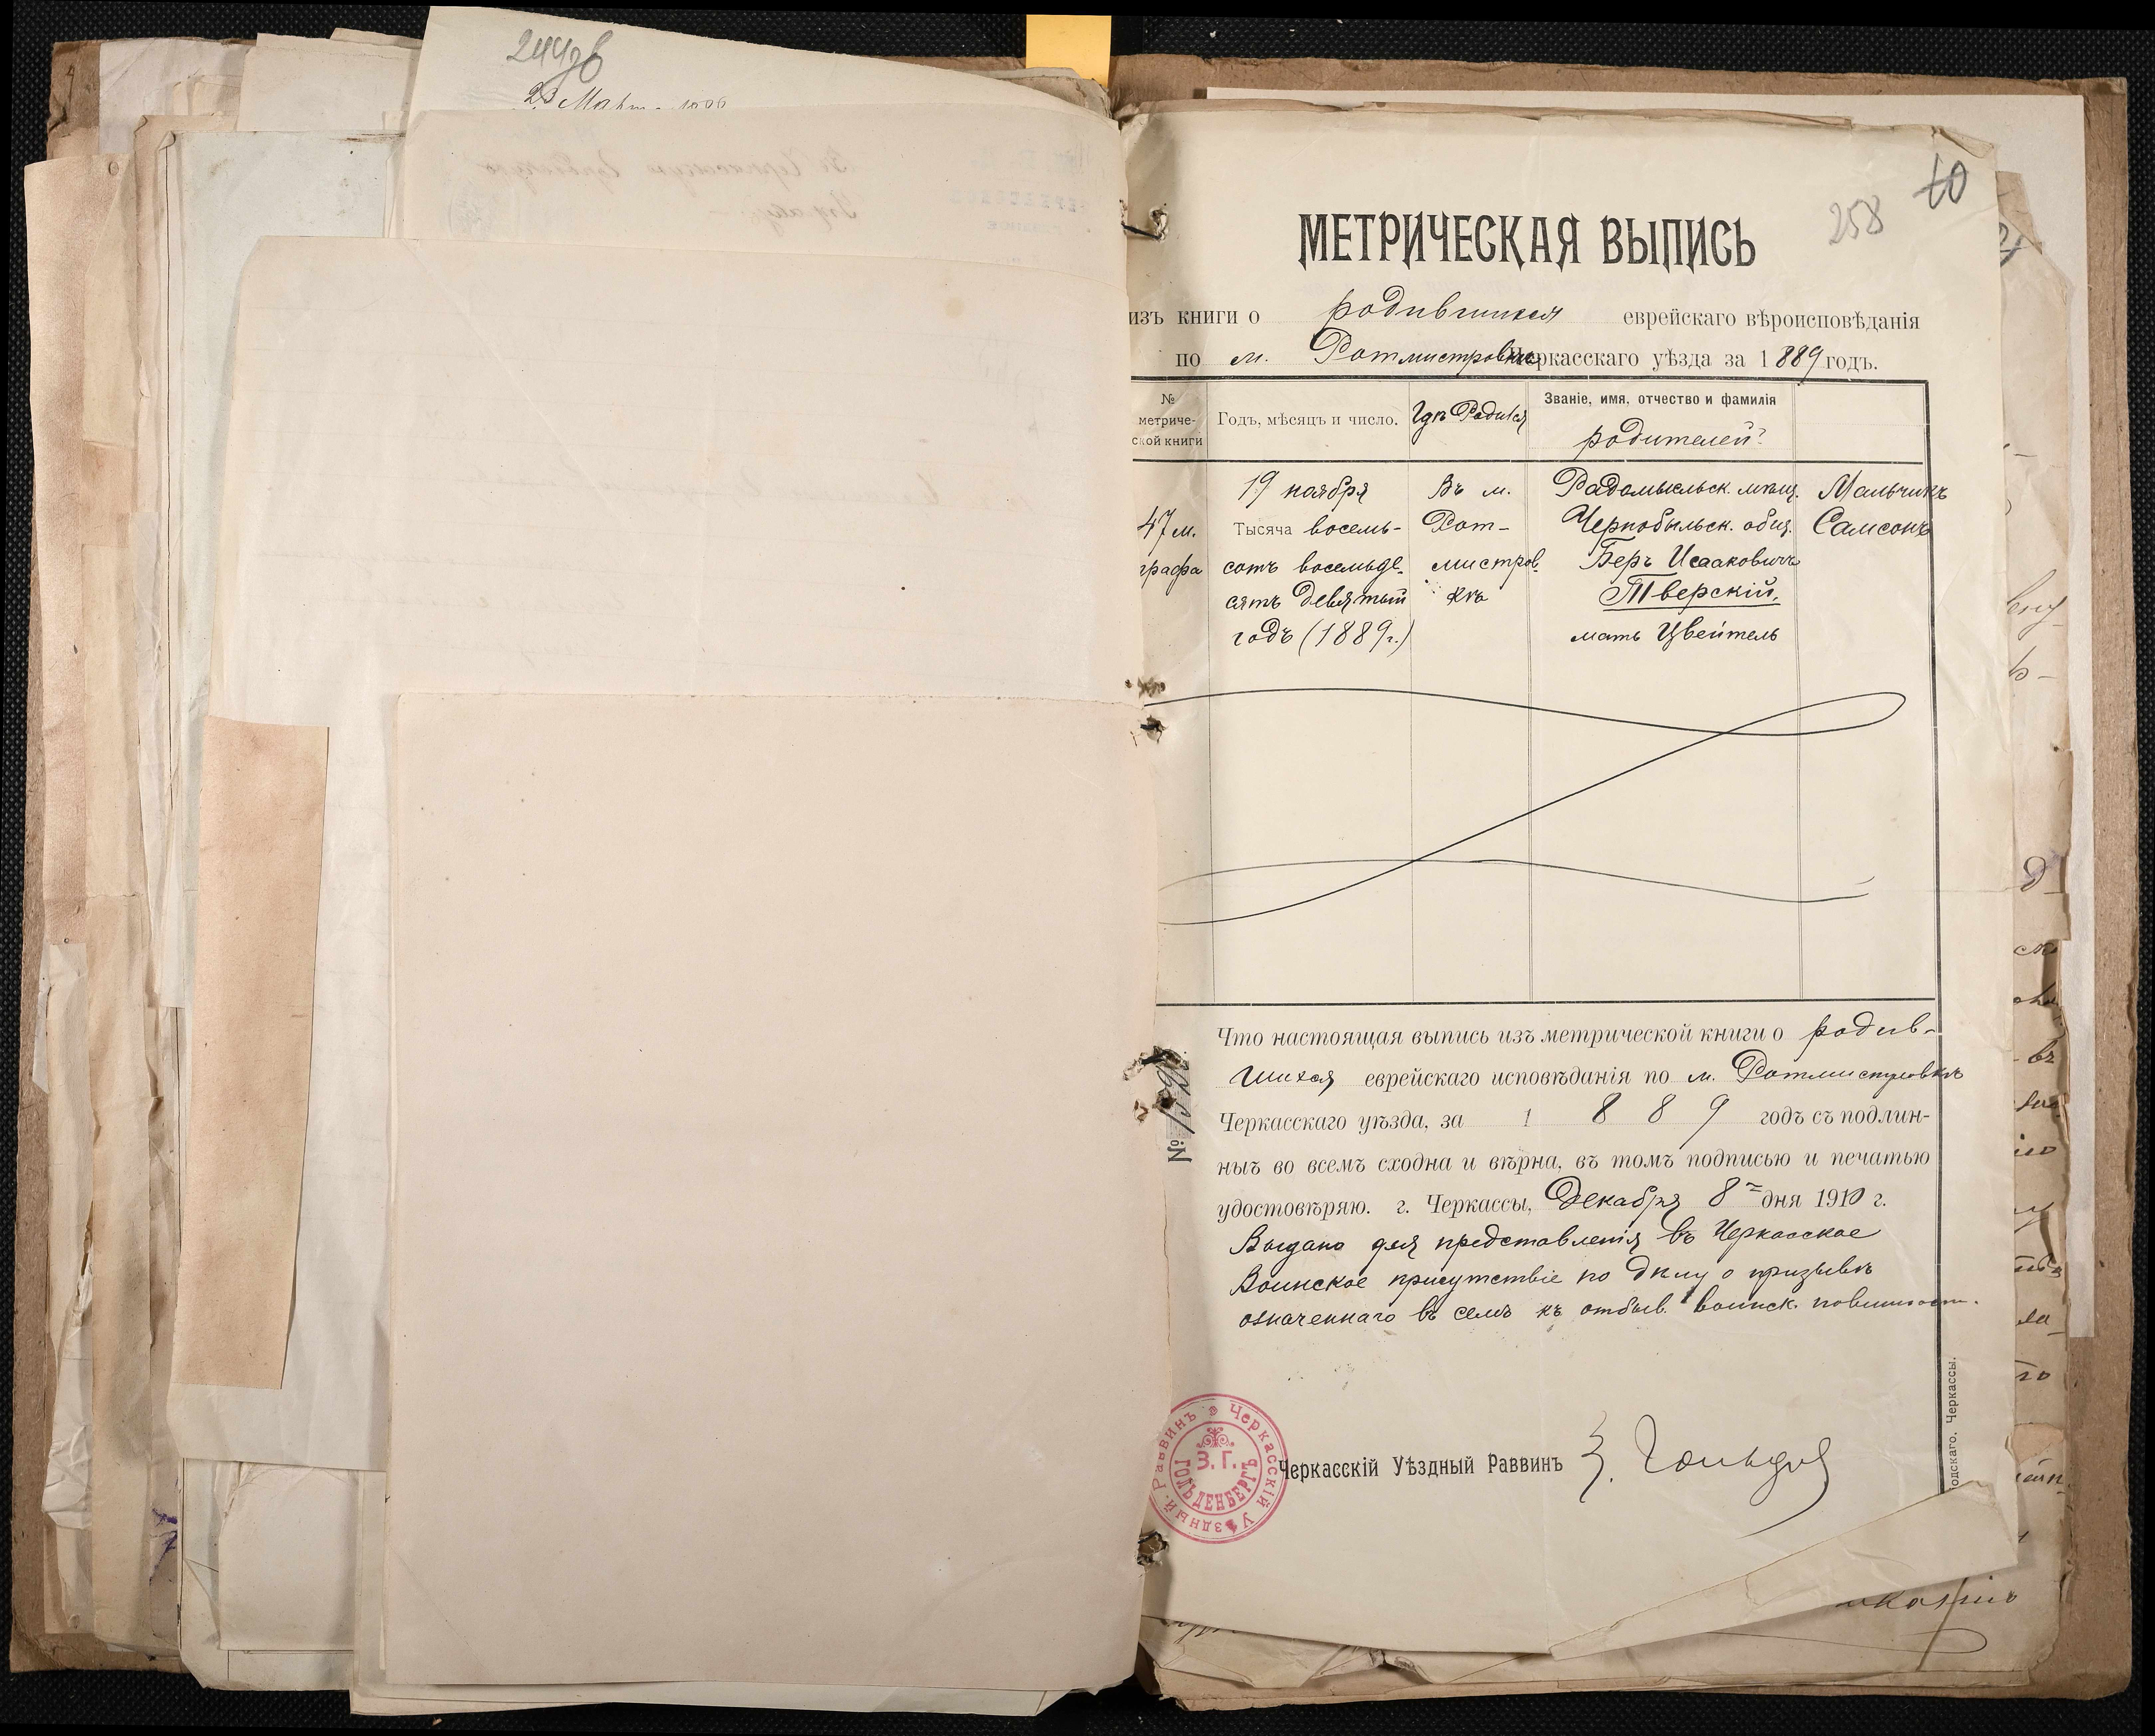 244 об
23 Март
10
258
МЕТРИЧЕСКАЯ ВЫПИСЬ
изъ книги о родившихся еврейскаго вѣроисповѣданія
по м. Ротмистровкѣ Черкасскаго уѣзда за 1889 годъ.
№ метриче-ской книги
Годъ, мѣсяцъ и число.
Гдѣ Родился
Званіе, имя, отчество и фамилія
родителей
19 ноября Въ м. Радомысльск. мѣщ. Мальчикъ
47 м. Тысяча восемь- Рот- Чернобыльск. общ. Самсонъ
графа сотъ восемьде- мистров- Беръ Исааковичъ
сятъ девятый кѣ Тверскій,
годъ (1889 г.) мать Цвейтель
Что настоящая выпись изъ метрической книги о родив-
шихся еврейскаго исповѣданія по м. Ротмистровкѣ
Черкасскаго уѣзда, за 1 8 8 9 годъ съ подлин-
ныъ во всемъ сходна и вѣрна, въ томъ подписью и печатью
удостовѣряю. г. Черкассы, Декабря 8 дня 1910 г.
Выдана для представленія въ Черкасское
Воинское присутствіе по дѣлу о призывѣ
означеннаго въ семъ къ отбыв. воинск. повинност.
№
Черкасскій Уѣздный Раввинъ З. Гольд
Черкасскій Уѣздный Раввинъ
З. Г.
ГОЛЬДЕНБЕРГЪ
одскаго, Черкассы.